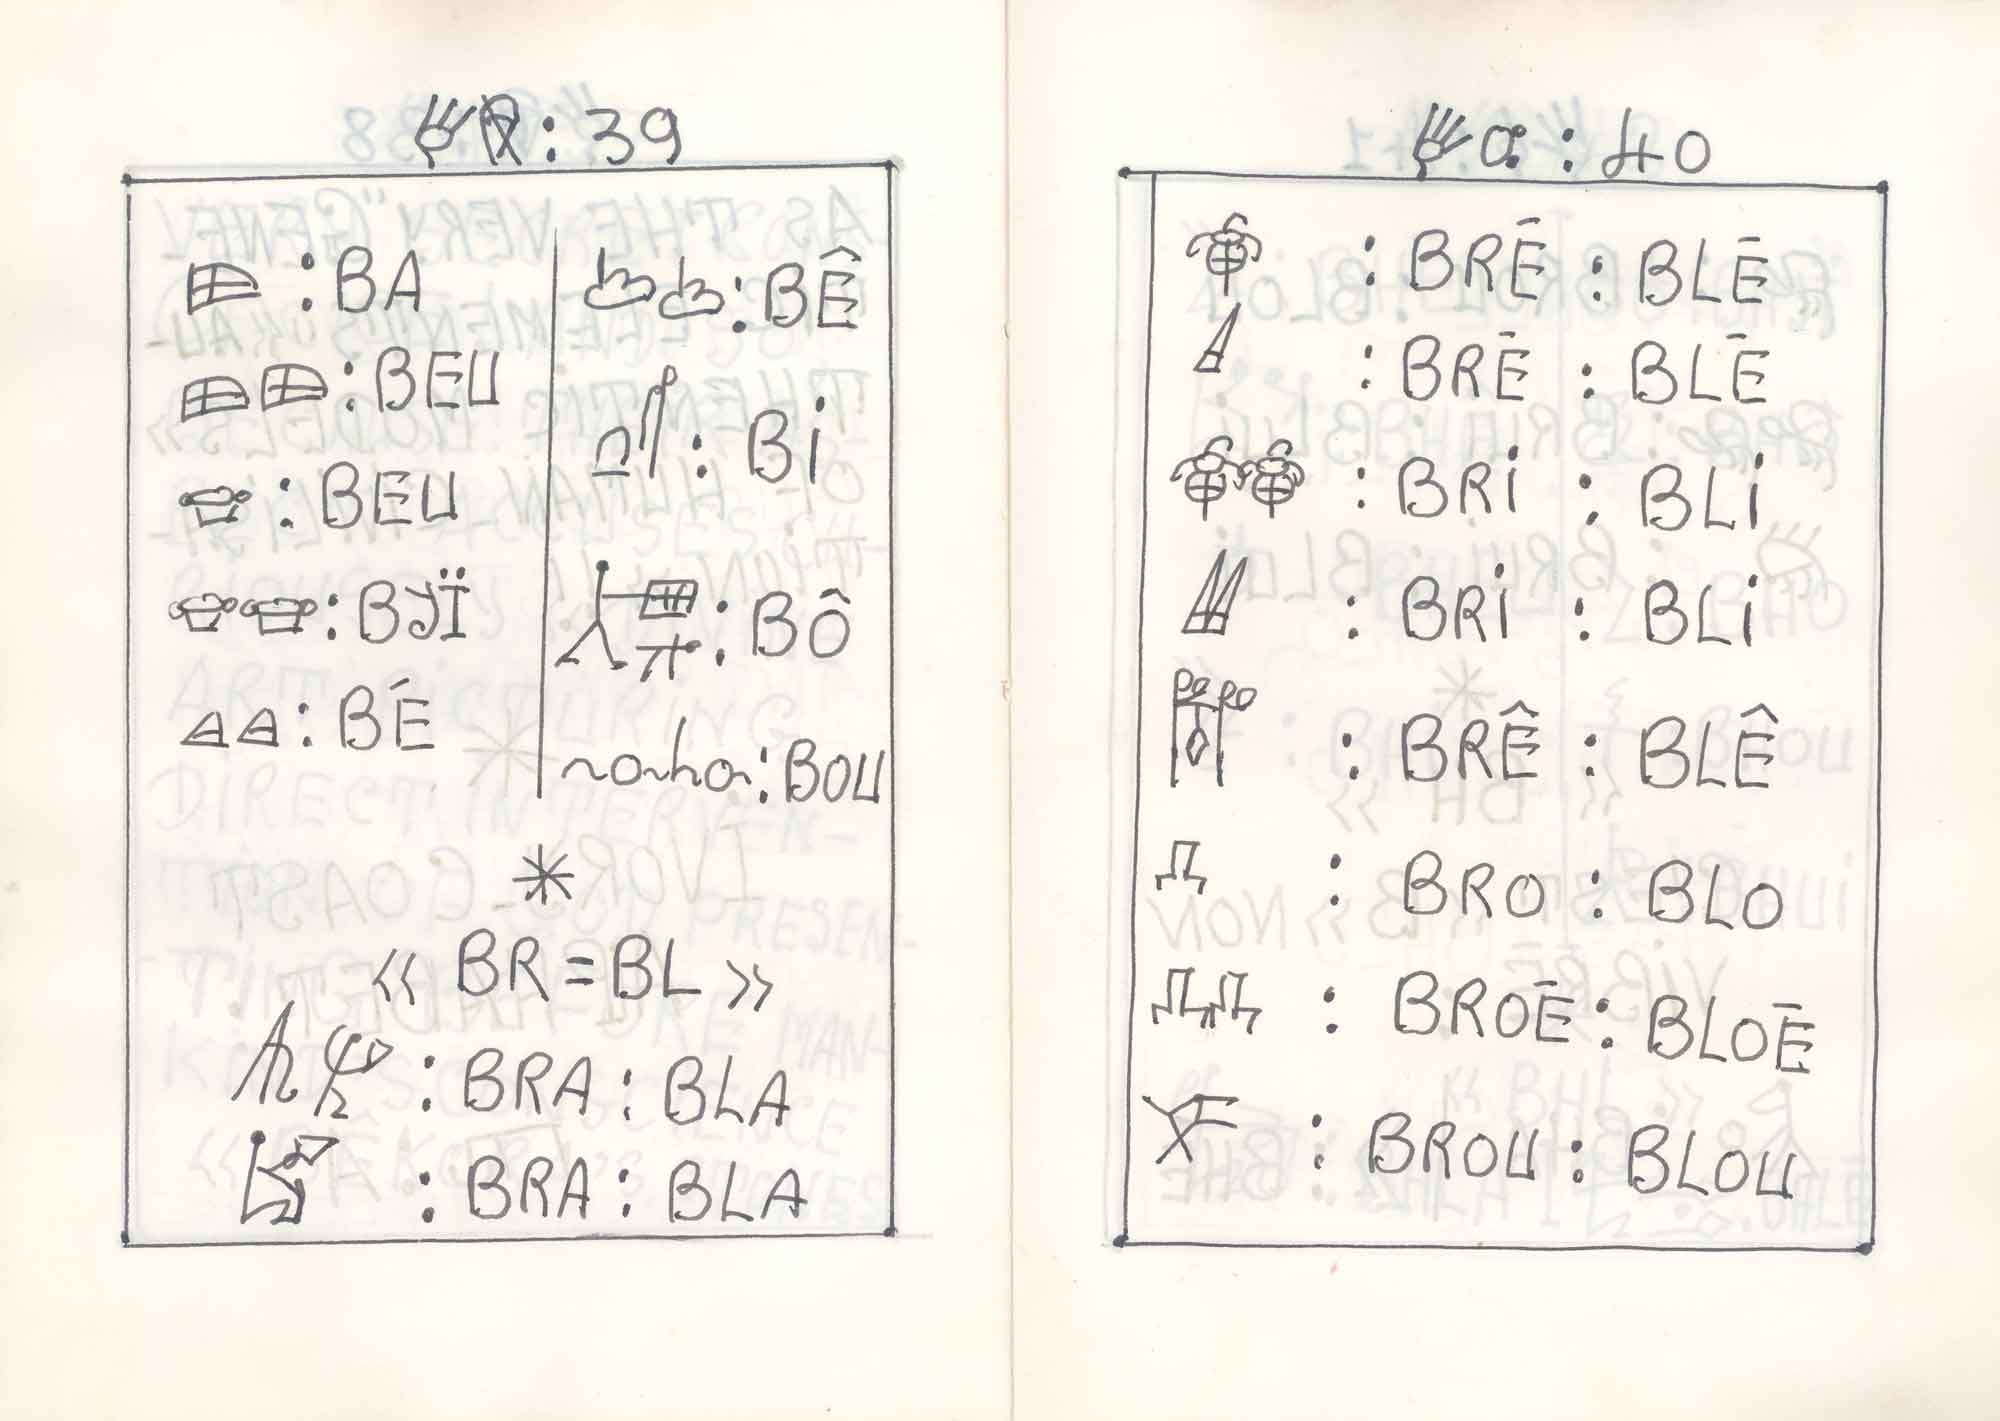 : 39
: BA
: BEU
: BEU
: BJÏ
: BÉ
: BÊ
: BI
: BÔ
: BOU
« BR = BL »
: BRA : BLA
: BRA : BLA
: 40
: BRĒ : BLĒ
: BRĒ : BLĒ
: BRI : BLI
: BRI : BLI
: BRÊ : BLÊ
: BRO : BLO
: BROĒ : BLOĒ
: BROU : BLOU